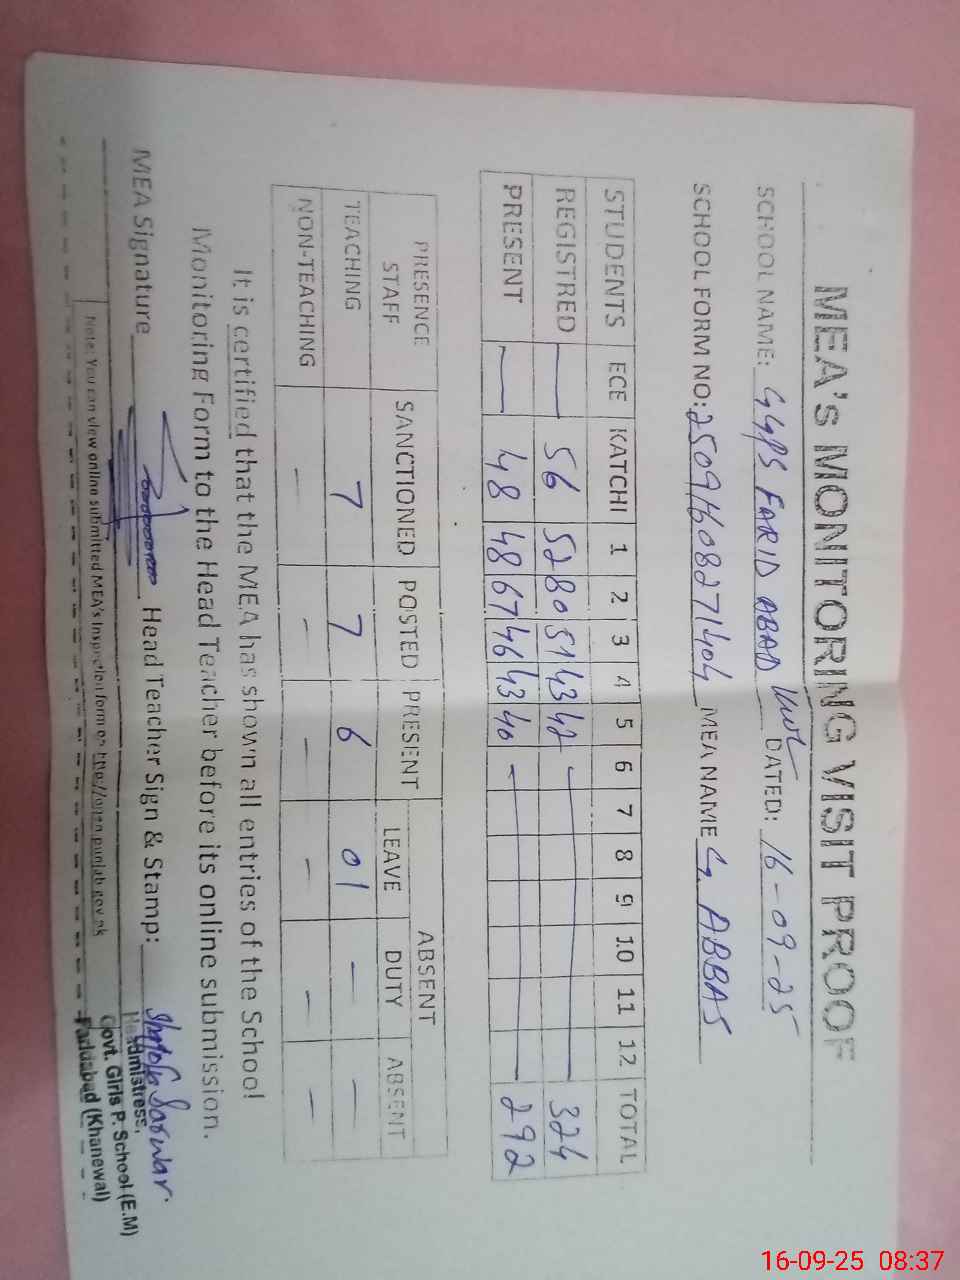 MEA's MONITORING VISIT PROOF
SCHOOL NAME: GGPS FARID ABAD KWL DATED: 16-09-25
SCHOOL FORM NO: 25091608271404 MEA NAME G. ABBAS
STUDENTS ECE KATCHI 1 2 3 4 5 6 7 8 9 10 11 12 TOTAL
REGISTRED — 56 52 80 51 43 42 — 324
PRESENT — 48 48 67 46 43 40 — 292
PRESENCE STAFF SANCTIONED POSTED PRESENT ABSENT
LEAVE DUTY ABSENT
TEACHING 7 7 6 01 — —
NON-TEACHING — — — — — —
It is certified that the MEA has shown all entries of the School
Monitoring Form to the Head Teacher before its online submission.
MEA Signature Head Teacher Sign & Stamp: Sarwar.
Headmistress
Govt. Girls P. School (E.M)
Faridabad (Khanewal)
Note: You can view online submitted MEA's Inspection form on http://open.punjab.gov.pk
16-09-25 08:37